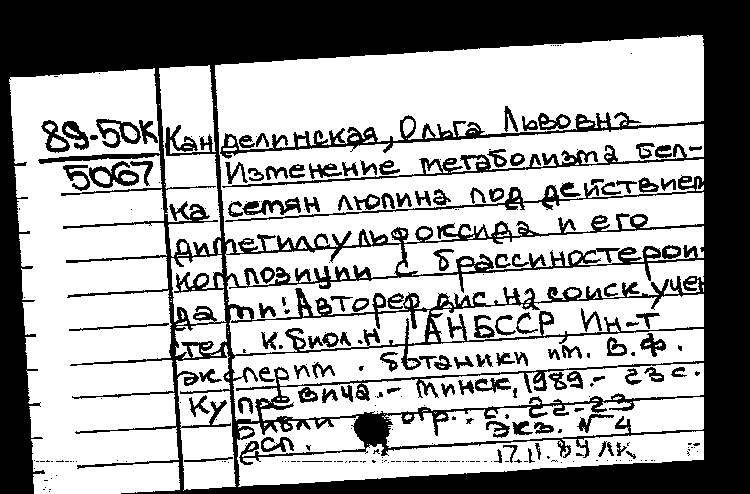 89-50К Канделинская, Ольга Львовна
5067 Изменение метаболизма бел-
ка семян люпина под действием
диметилсульфоксида и его
композиции с брассиностерои-
дами: Автореф. дис. на соиск. учен.
степ. к.биол.н. / АН БССР, Ин-т
эксперим. ботаники им. В.Ф.
Купревича.- Минск, 1989.- 23 с.
Библиогр.: с. 22-23
Дсп. Экз. № 4
17.11.89 ЛК